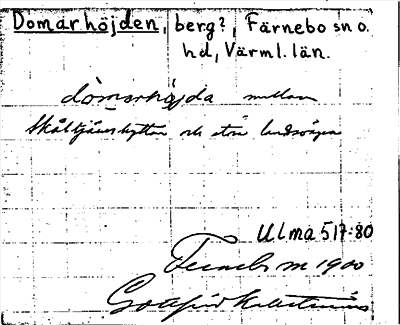 Domarhöjden, berg?, Färnebo sn o.
hd, Värml. län.
domarhöjda mellan
Skåltjärnshyttan och stora landsvägen
Ulma 517:80
Fernebo m 1900
Gottfrid Kallstenius